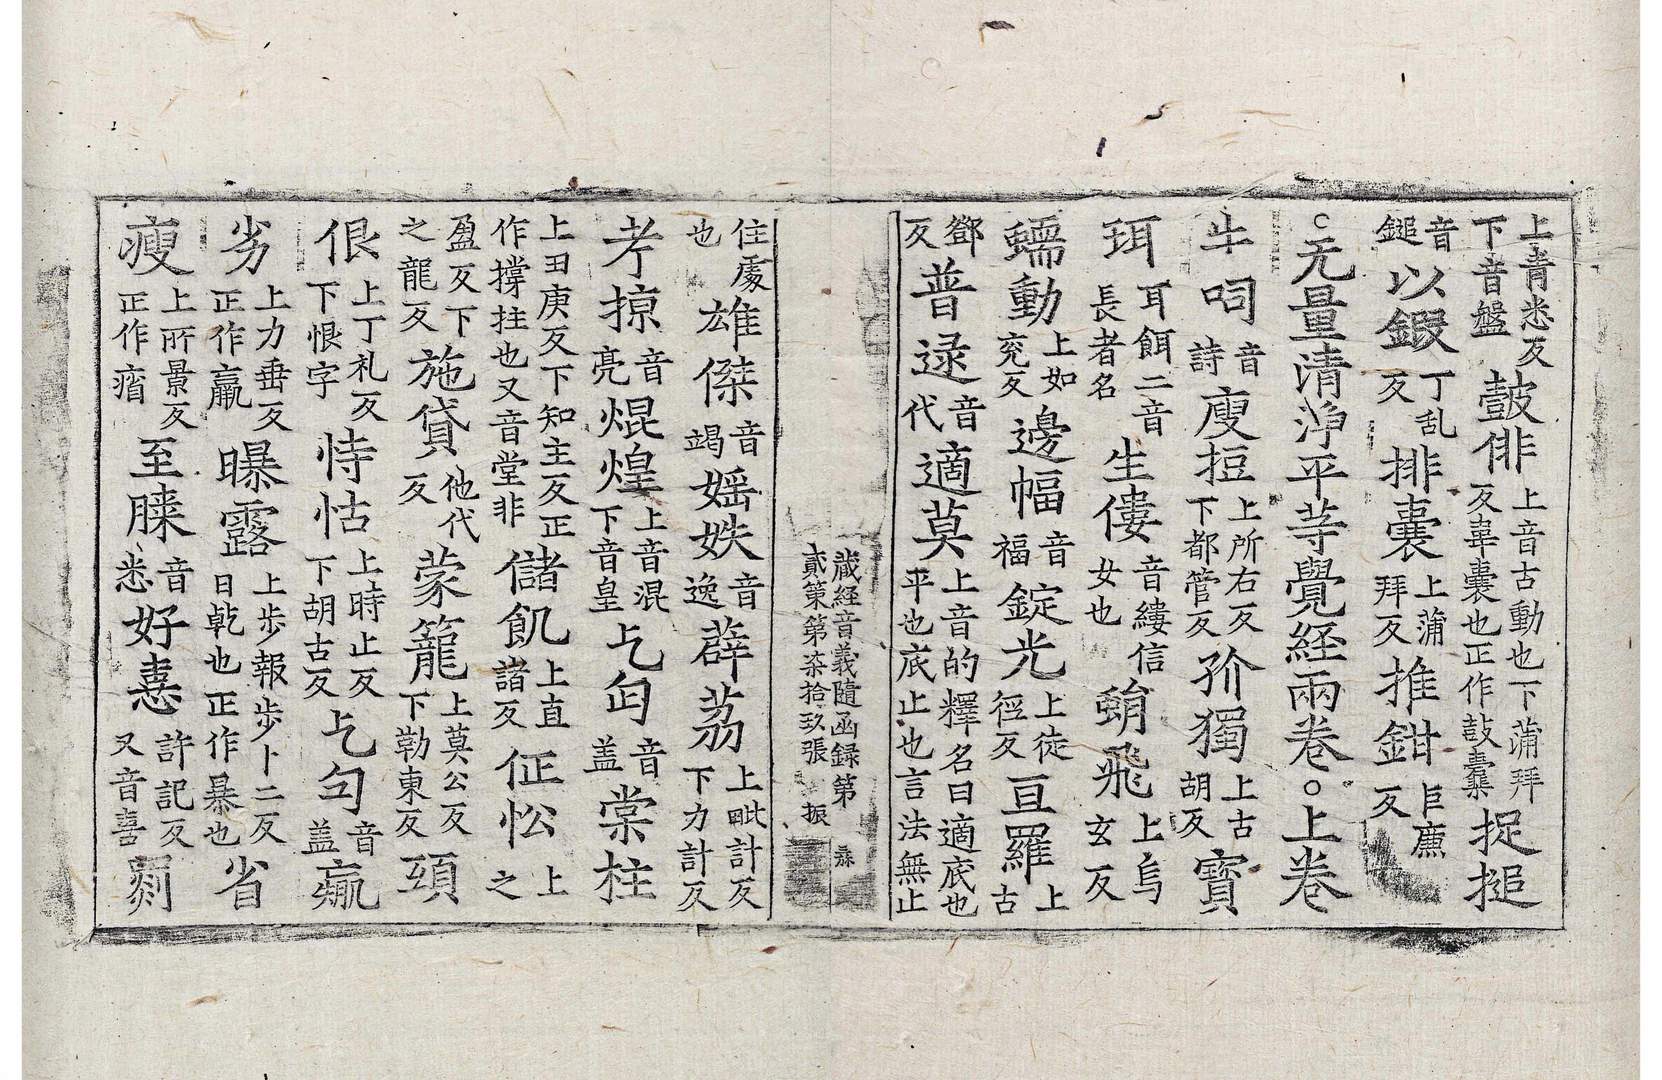 上青悉反下音盤皷俳上音古動也下蒲拜反韋囊也正作鼓橐捉搥
音鎚以鍜丁乱反排囊上蒲拜反推鉗巨廉反
○无量清浄平等覺経兩卷○上卷
牛呞音詩廋㧣上所右反下都管反㝈獨上古胡反寳
珥耳餌二音長者名生僂音縷信女也蜎飛上烏玄反
蠕動上如兖反邊幅音福錠光上徒徑反亘羅上古
鄧反普逯音代適莫上音的釋名曰適底也平也底止也言法無止
藏経音義隨函録第貳第第柒拾玖張 振
住處也雄傑音竭婬妷音逸薜荔上毗計反下力計反
考掠音亮焜煌上音混下音皇乞匃音盖棠柱
上丑庚反下知主反正作撐拄也又音堂非儲飢上直諸反怔忪上之
盈反下之龍反施貸他代反蒙籠上莫公反下勒東反頭
佷上丁礼反下恨字恃怙上時止反下胡古反乞匃音盖羸
劣上力垂反正作羸曝露上步報步卜二反日乾也正作暴也省
瘦上所景反正作㾪至𦛗音悉好憙許記反又音喜